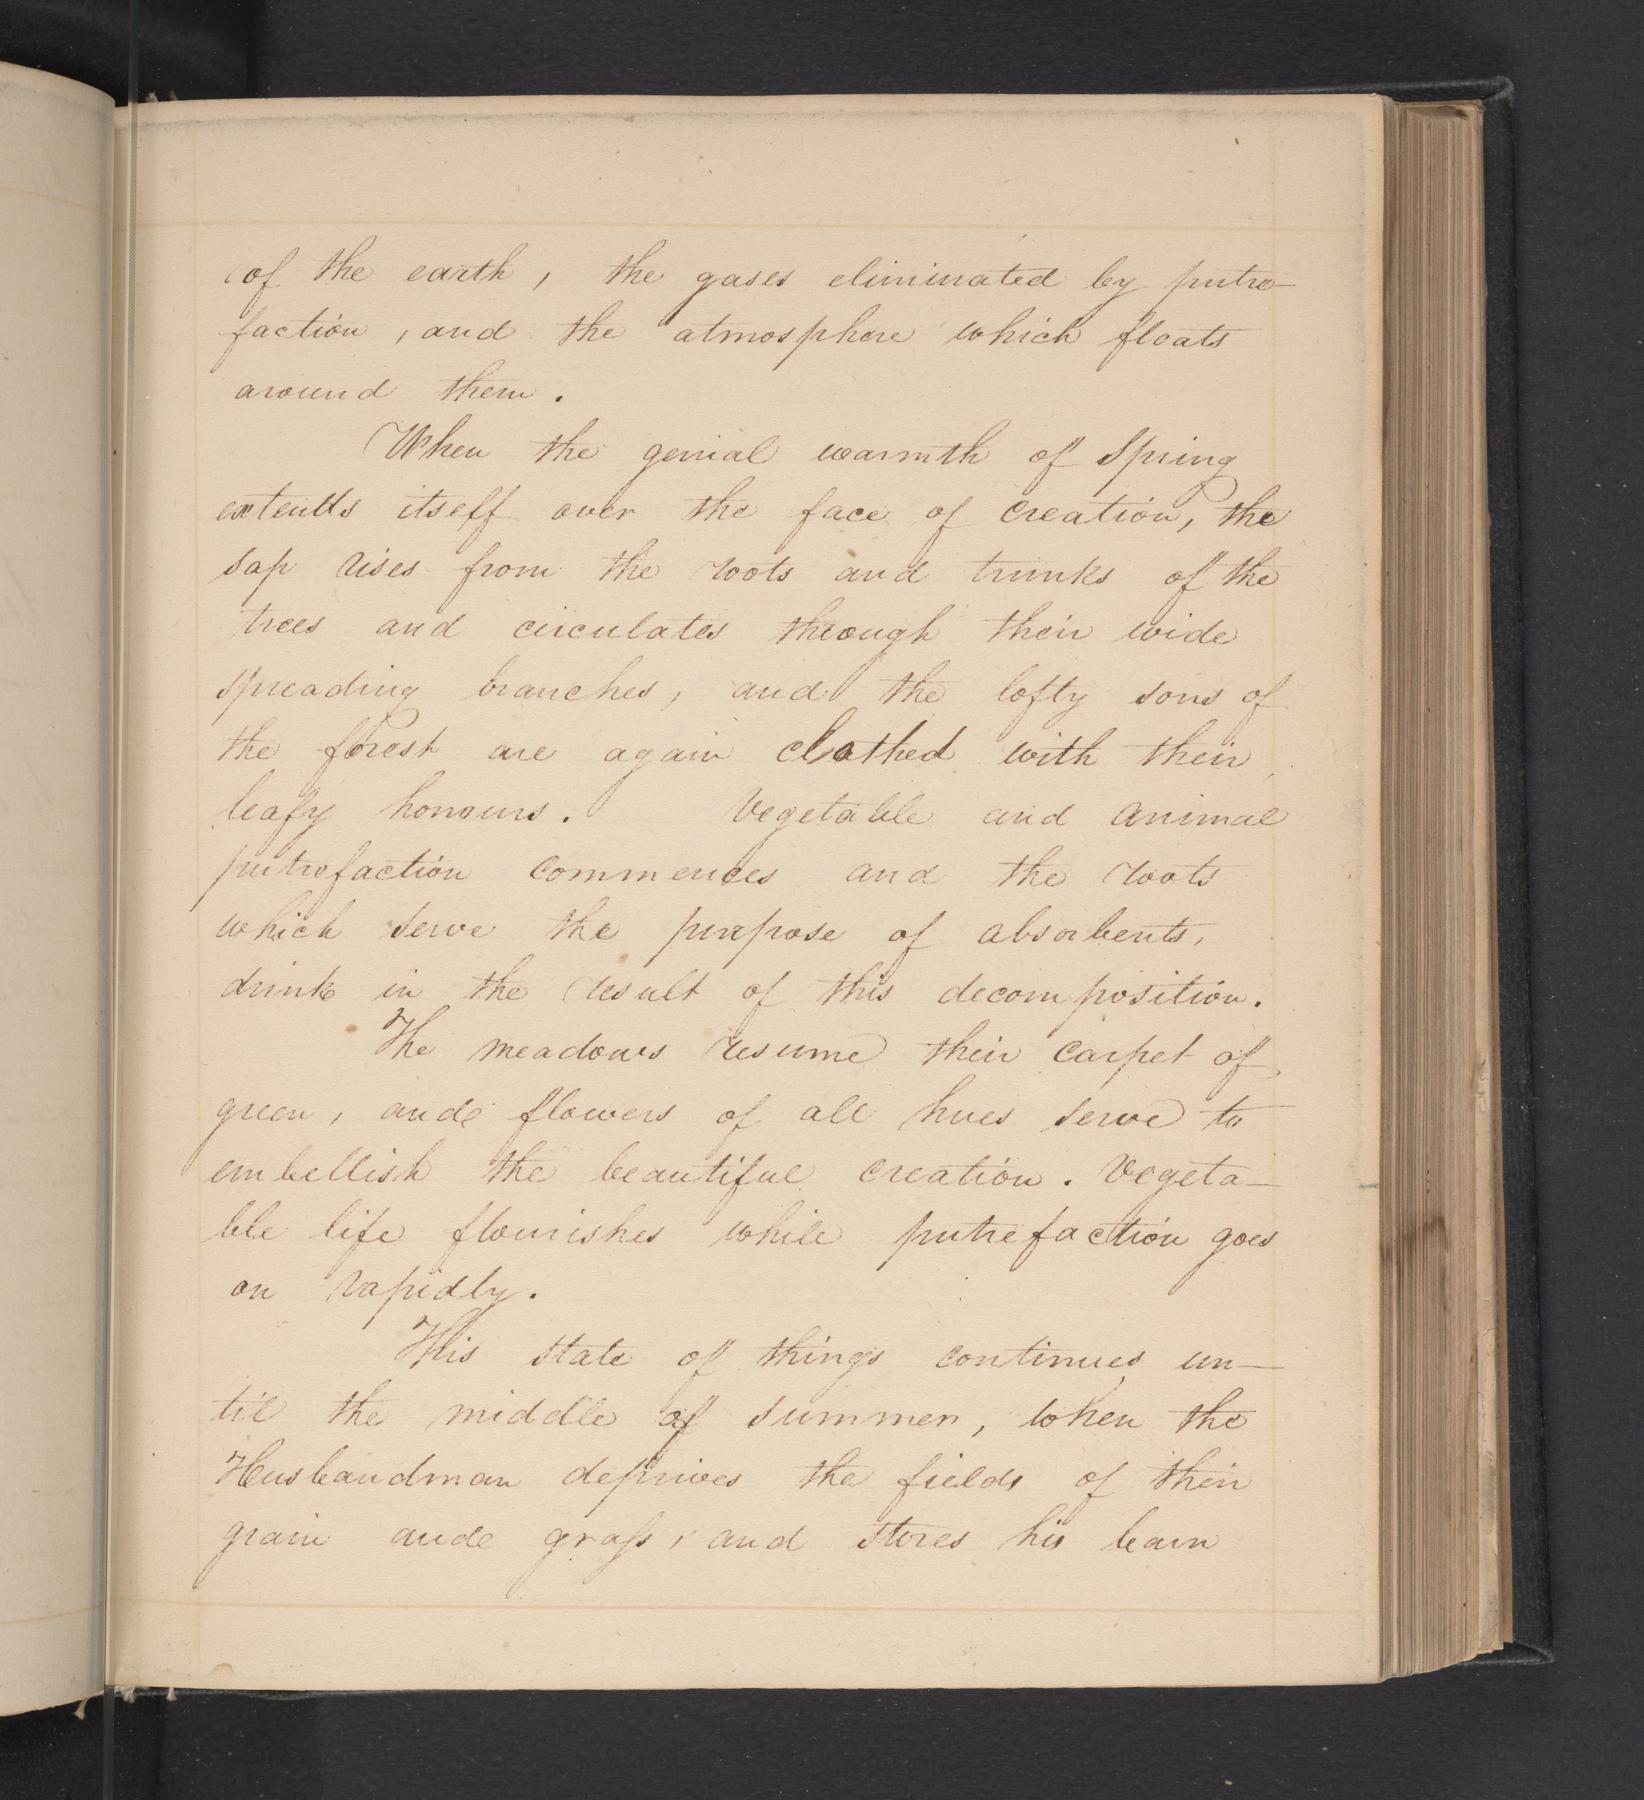 of the earth, the gases eliminated by putre-
faction, and the atmosphere which floats
around them.
When the genial warmth of Spring
extends itself over the face of creation, the
sap rises from the roots and trunks of the
trees and circulates through their wide
spreading branches, and the lofty sons of
the forest are again clothed with their
leafy honours. Vegetable and animal
putrefaction commences and the roots
which serve the purpose of absorbents,
drink in the result of this decomposition.
The meadows resume their carpet of
green, and flowers of all hues serve to
embellish the beautiful creation. Vegeta-
ble life flourishes while putrefaction goes
on rapidly.
This state of things continues un-
til the middle of summer, when the
Husbandman deprives the fields of their
grain and grass, and stores his barn